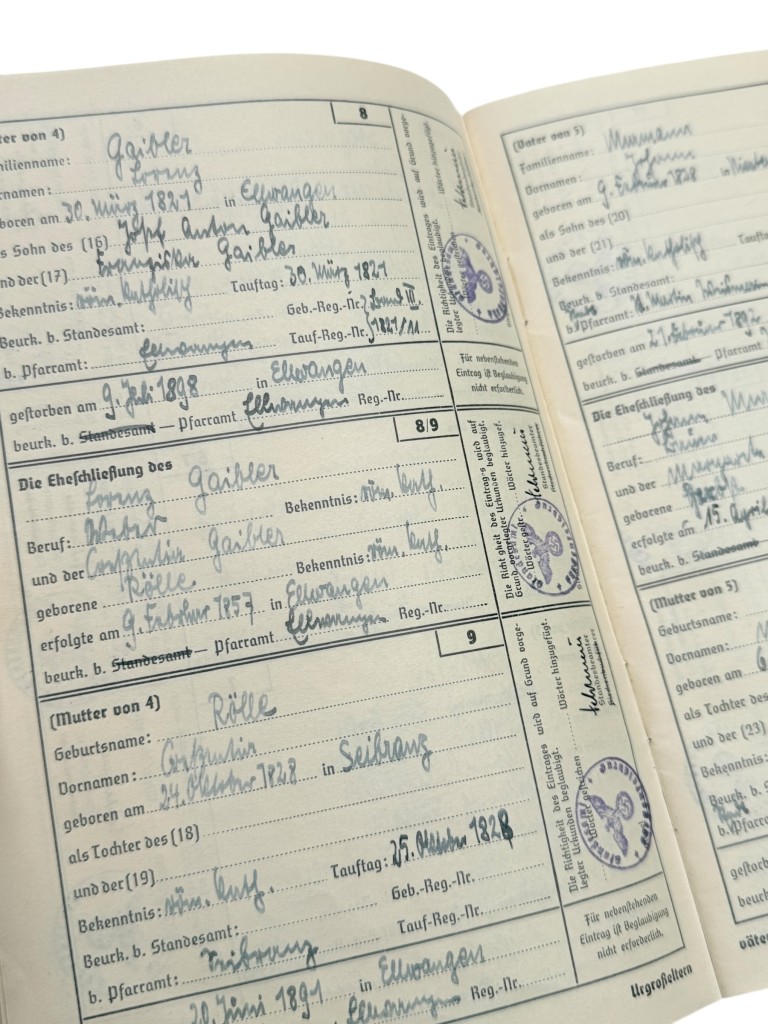 8
ter von 4)
milienname: Gaibler
rnamen: Lorenz
boren am 30. März 1821 in Ellwangen
s Sohn des (16) Josef Anton Gaibler
und der (17) Franziska Gaibler
Bekenntnis: röm. katholisch Tauftag: 30. März 1821
Beurk. b. Standesamt: Geb.-Reg.-Nr. Band III.
b. Pfarramt: Ellwangen Tauf-Reg.-Nr. 1821/11
gestorben am 9. Juli 1898 in Ellwangen
beurk. b. Standesamt — Pfarramt Ellwangen Reg.-Nr.
Die Richtigkeit des Eintrages wird auf Grund vorge-
legter Urkunden beglaubigt. Wörter hinzugefügt.
Für nebenstehenden
Eintrag ist Beglaubigung
nicht erforderlich.
8/9
Die Eheschließung des
Lorenz Gaibler
Beruf: Weber Bekenntnis: röm. kath.
und der Gaibler
geborene Rölle Bekenntnis: röm. kath.
erfolgte am 9. Februar 1857 in Ellwangen
beurk. b. Standesamt — Pfarramt Ellwangen Reg.-Nr.
Die Richtigkeit des Eintrag-s wird auf
Grund vorgelegter Urkunden beglaubigt.
Wörter gestr. Wörter hinzugef.
Standesbeamter
9
(Mutter von 4)
Geburtsname: Rölle
Vornamen:
geboren am 24. Oktober 1828 in Seibranz
als Tochter des (18)
und der (19)
Bekenntnis: röm. kath. Tauftag: 25. Oktober 1828
Beurk. b. Standesamt: Geb.-Reg.-Nr.
b. Pfarramt: Seibranz Tauf-Reg.-Nr.
20. Juni 1891 in Ellwangen
Ellwangen Reg.-Nr.
Die Richtigkeit des Eintrages wird auf Grund vorge-
legter Urkunden beglaubigt.
Wörter gestrichen Wörter hinzugefügt.
Standesbeamter
Für nebenstehenden
Eintrag ist Beglaubigung
nicht erforderlich.
Urgroßeltern
(Vater von 5)
Familienname: Murmann
Vornamen: Johann
geboren am 9. Februar 1828 in
als Sohn des (20)
und der (21)
Bekenntnis: röm. katholisch Taufta
Beurk. b. Standesamt:
b. Pfarramt: St. Martin
gestorben am 21. Februar 1892
beurk. b. Standesamt — Pfarramt
Die Eheschließung des
Johann Mur
Beruf:
und der Margareth
geborene
erfolgte am 15. April
beurk. b. Standesamt
(Mutter von 5)
Geburtsname:
Vornamen:
geboren am 6
als Tochter des
und der (23)
Bekenntnis:
Beurk. b. S
b. Pfarram
gestorb
beurk.
väter